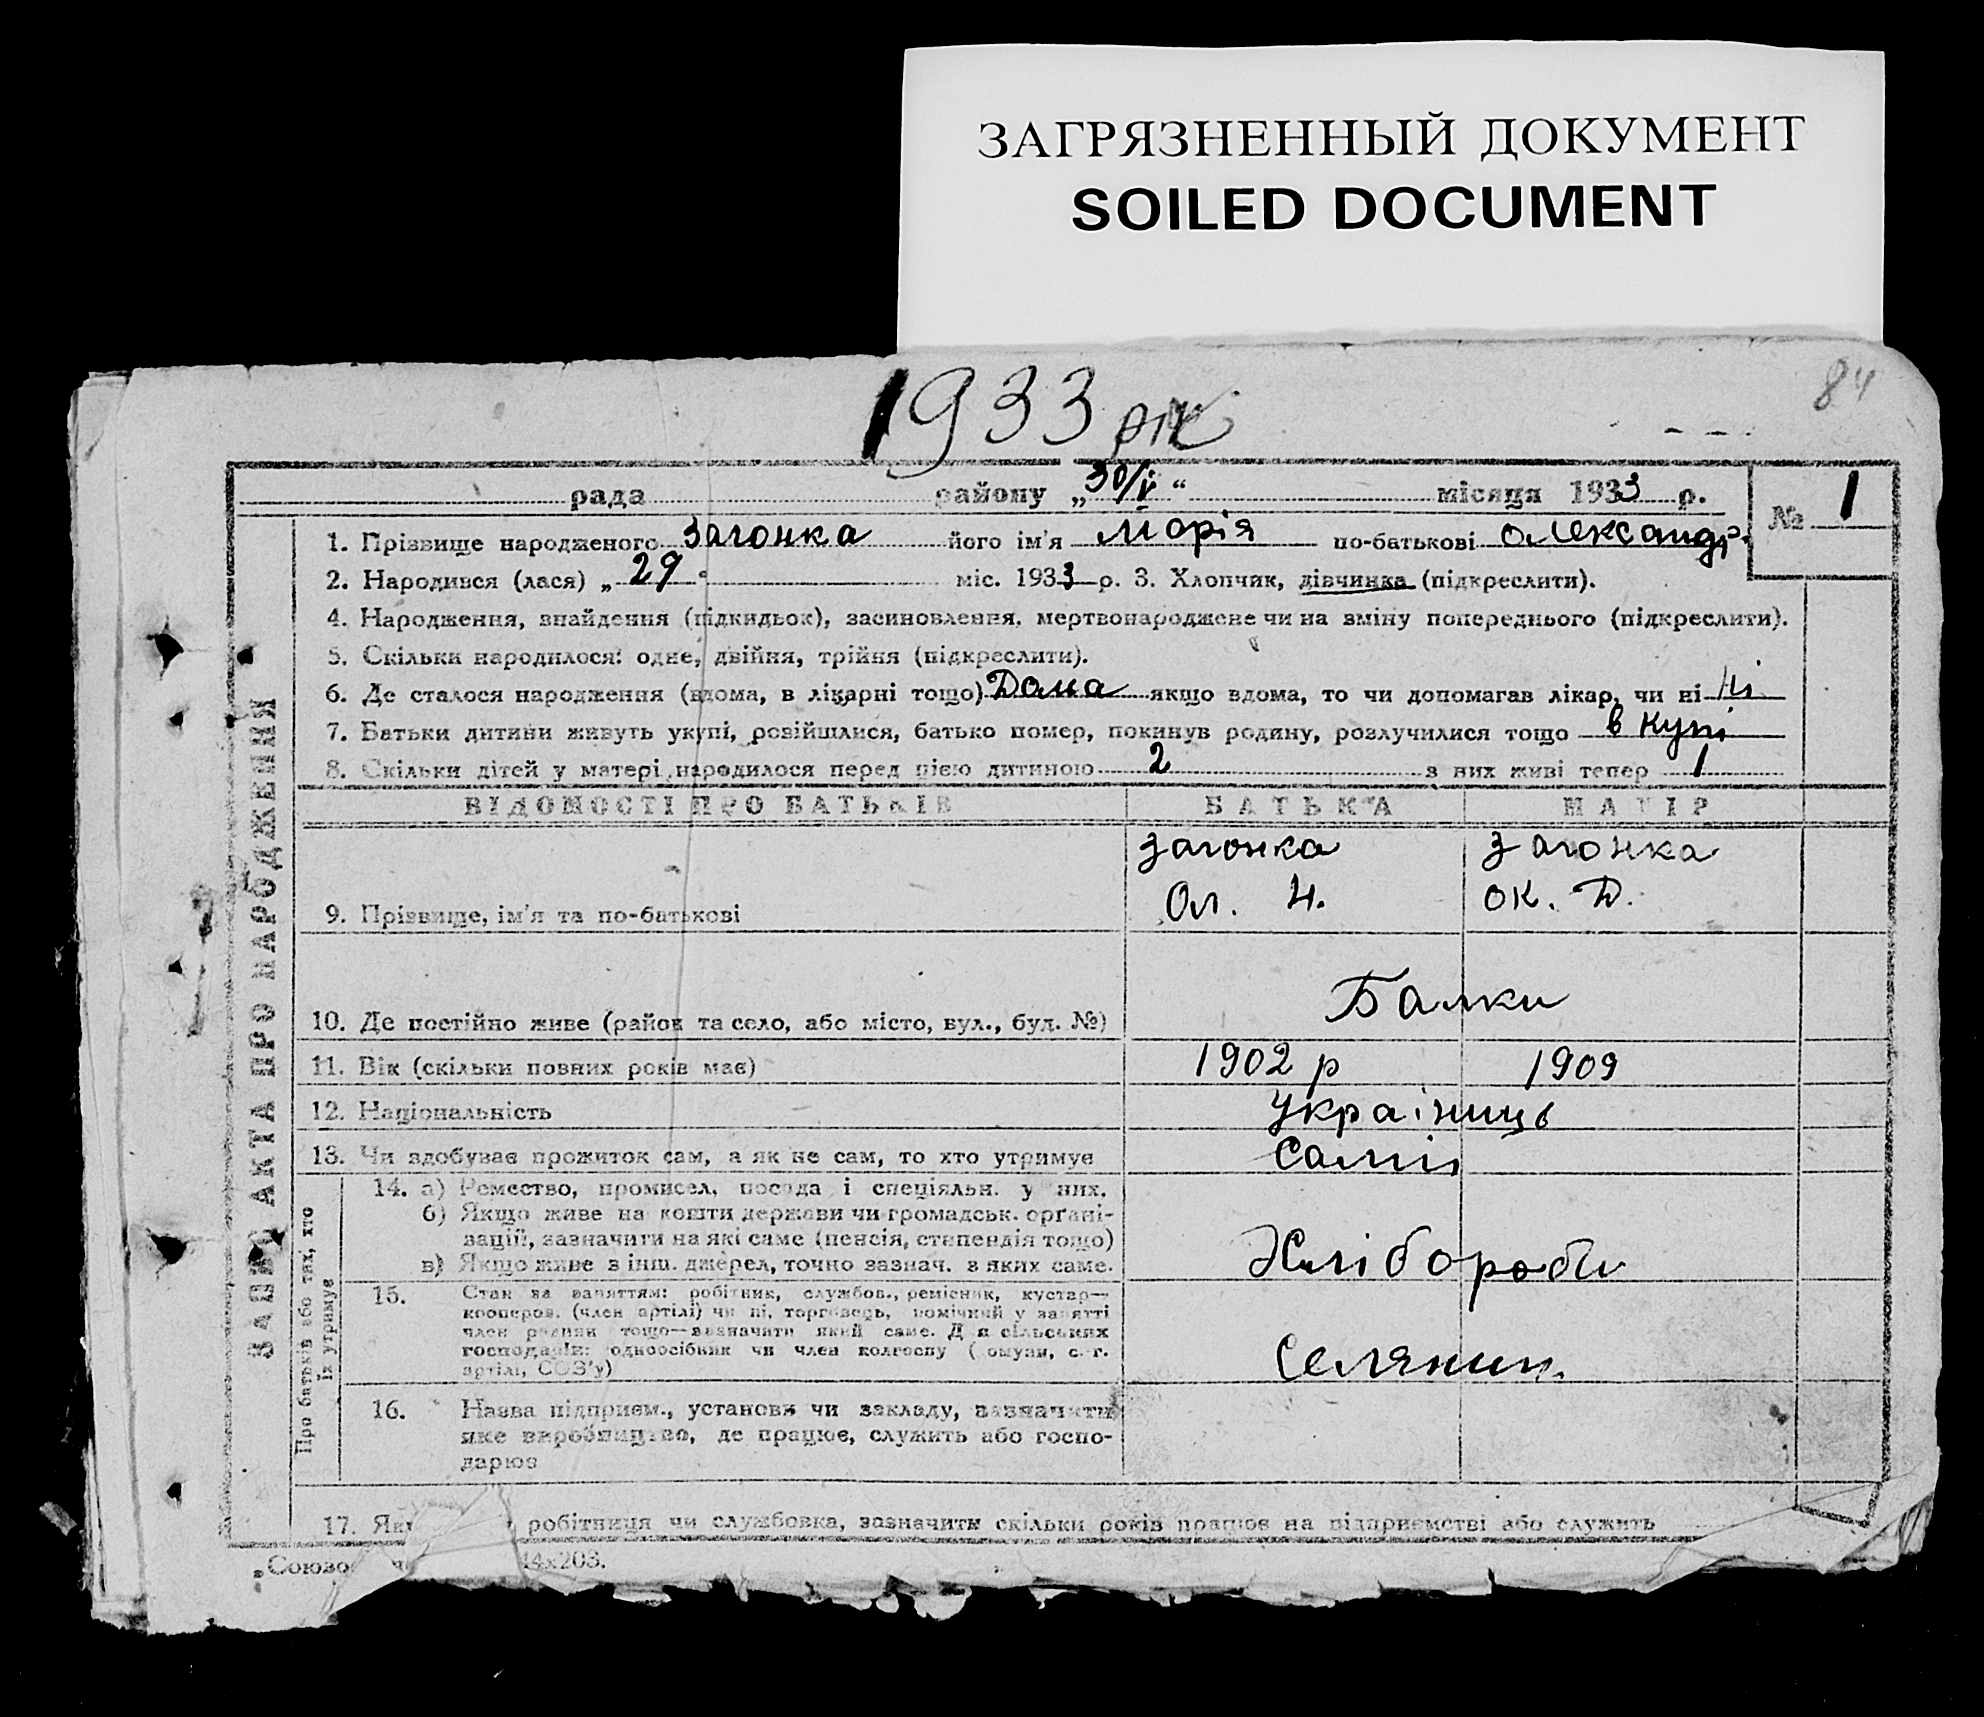 ЗАГРЯЗНЕННЫЙ ДОКУМЕНТ
SOILED DOCUMENT
84
1933 рік
рада району „30/V“ місяця 1933 р.
№ 1
1. Прізвище народженого Загонка його ім'я Марія по-батькові Олександр.
2. Народився (лася) „29 міс. 1933 р. 3. Хлопчик, дівчинка (підкреслити).
4. Народження, знайдення (підкидьок), засиновлення, мертвонароджене чи на зміну попереднього (підкреслити).
5. Скільки народилося: одне, двійня, трійня (підкреслити).
6. Де сталося народження (вдома, в лікарні тощо) Дома якщо вдома, то чи допомагав лікар, чи ні Ні
7. Батьки дитини живуть укупі, розійшлися, батько помер, покинув родину, розлучилися тощо в купі
8. Скільки дітей у матері народилося перед цією дитиною 2 з них живі тепер 1
ЗАПИС АКТА ПРО НАРОДЖЕННЯ
ВІДОМОСТІ ПРО БАТЬКІВ БАТЬКА МАТІР
Загонка Загонка
9. Прізвище, ім'я та по-батькові Ол. Н. Ок. Д.
10. Де постійно живе (район та село, або місто, вул., буд. №) Балки
11. Вік (скільки повних років має) 1902 р 1909
12. Національність Україниць
13. Чи здобуває прожиток сам, а як не сам, то хто утримує Самі
Про батьків або тих, хто
їх утримує
14. а) Ремество, промисел, посада і спеціяльн. у них.
б) Якщо живе на кошти держави чи громадськ. орґані-
зації, зазначити на які саме (пенсія, стипендія тощо)
в) Якщо живе з інш. джерел, точно зазнач. з яких саме.
Хлібороби
15. Стан за заняттям: робітник, службов., ремісник, кустар—
кооперов. (член артілі) чи ні, торговець, помічний у занятті
член родини тощо—зазначити який саме. Д я сільських
господарів: одноосібник чи член колгоспу ( омуни, с.-г.
артілі, СОЗ'у)
Селянин
16. Назва підприєм., установи чи закладу, зазначити
яке виробництво, де працює, служить або госпо-
дарює
17. Як робітниця чи службовка, зазначити скільки років працює на підприємстві або служить
„Союзо 14х203.